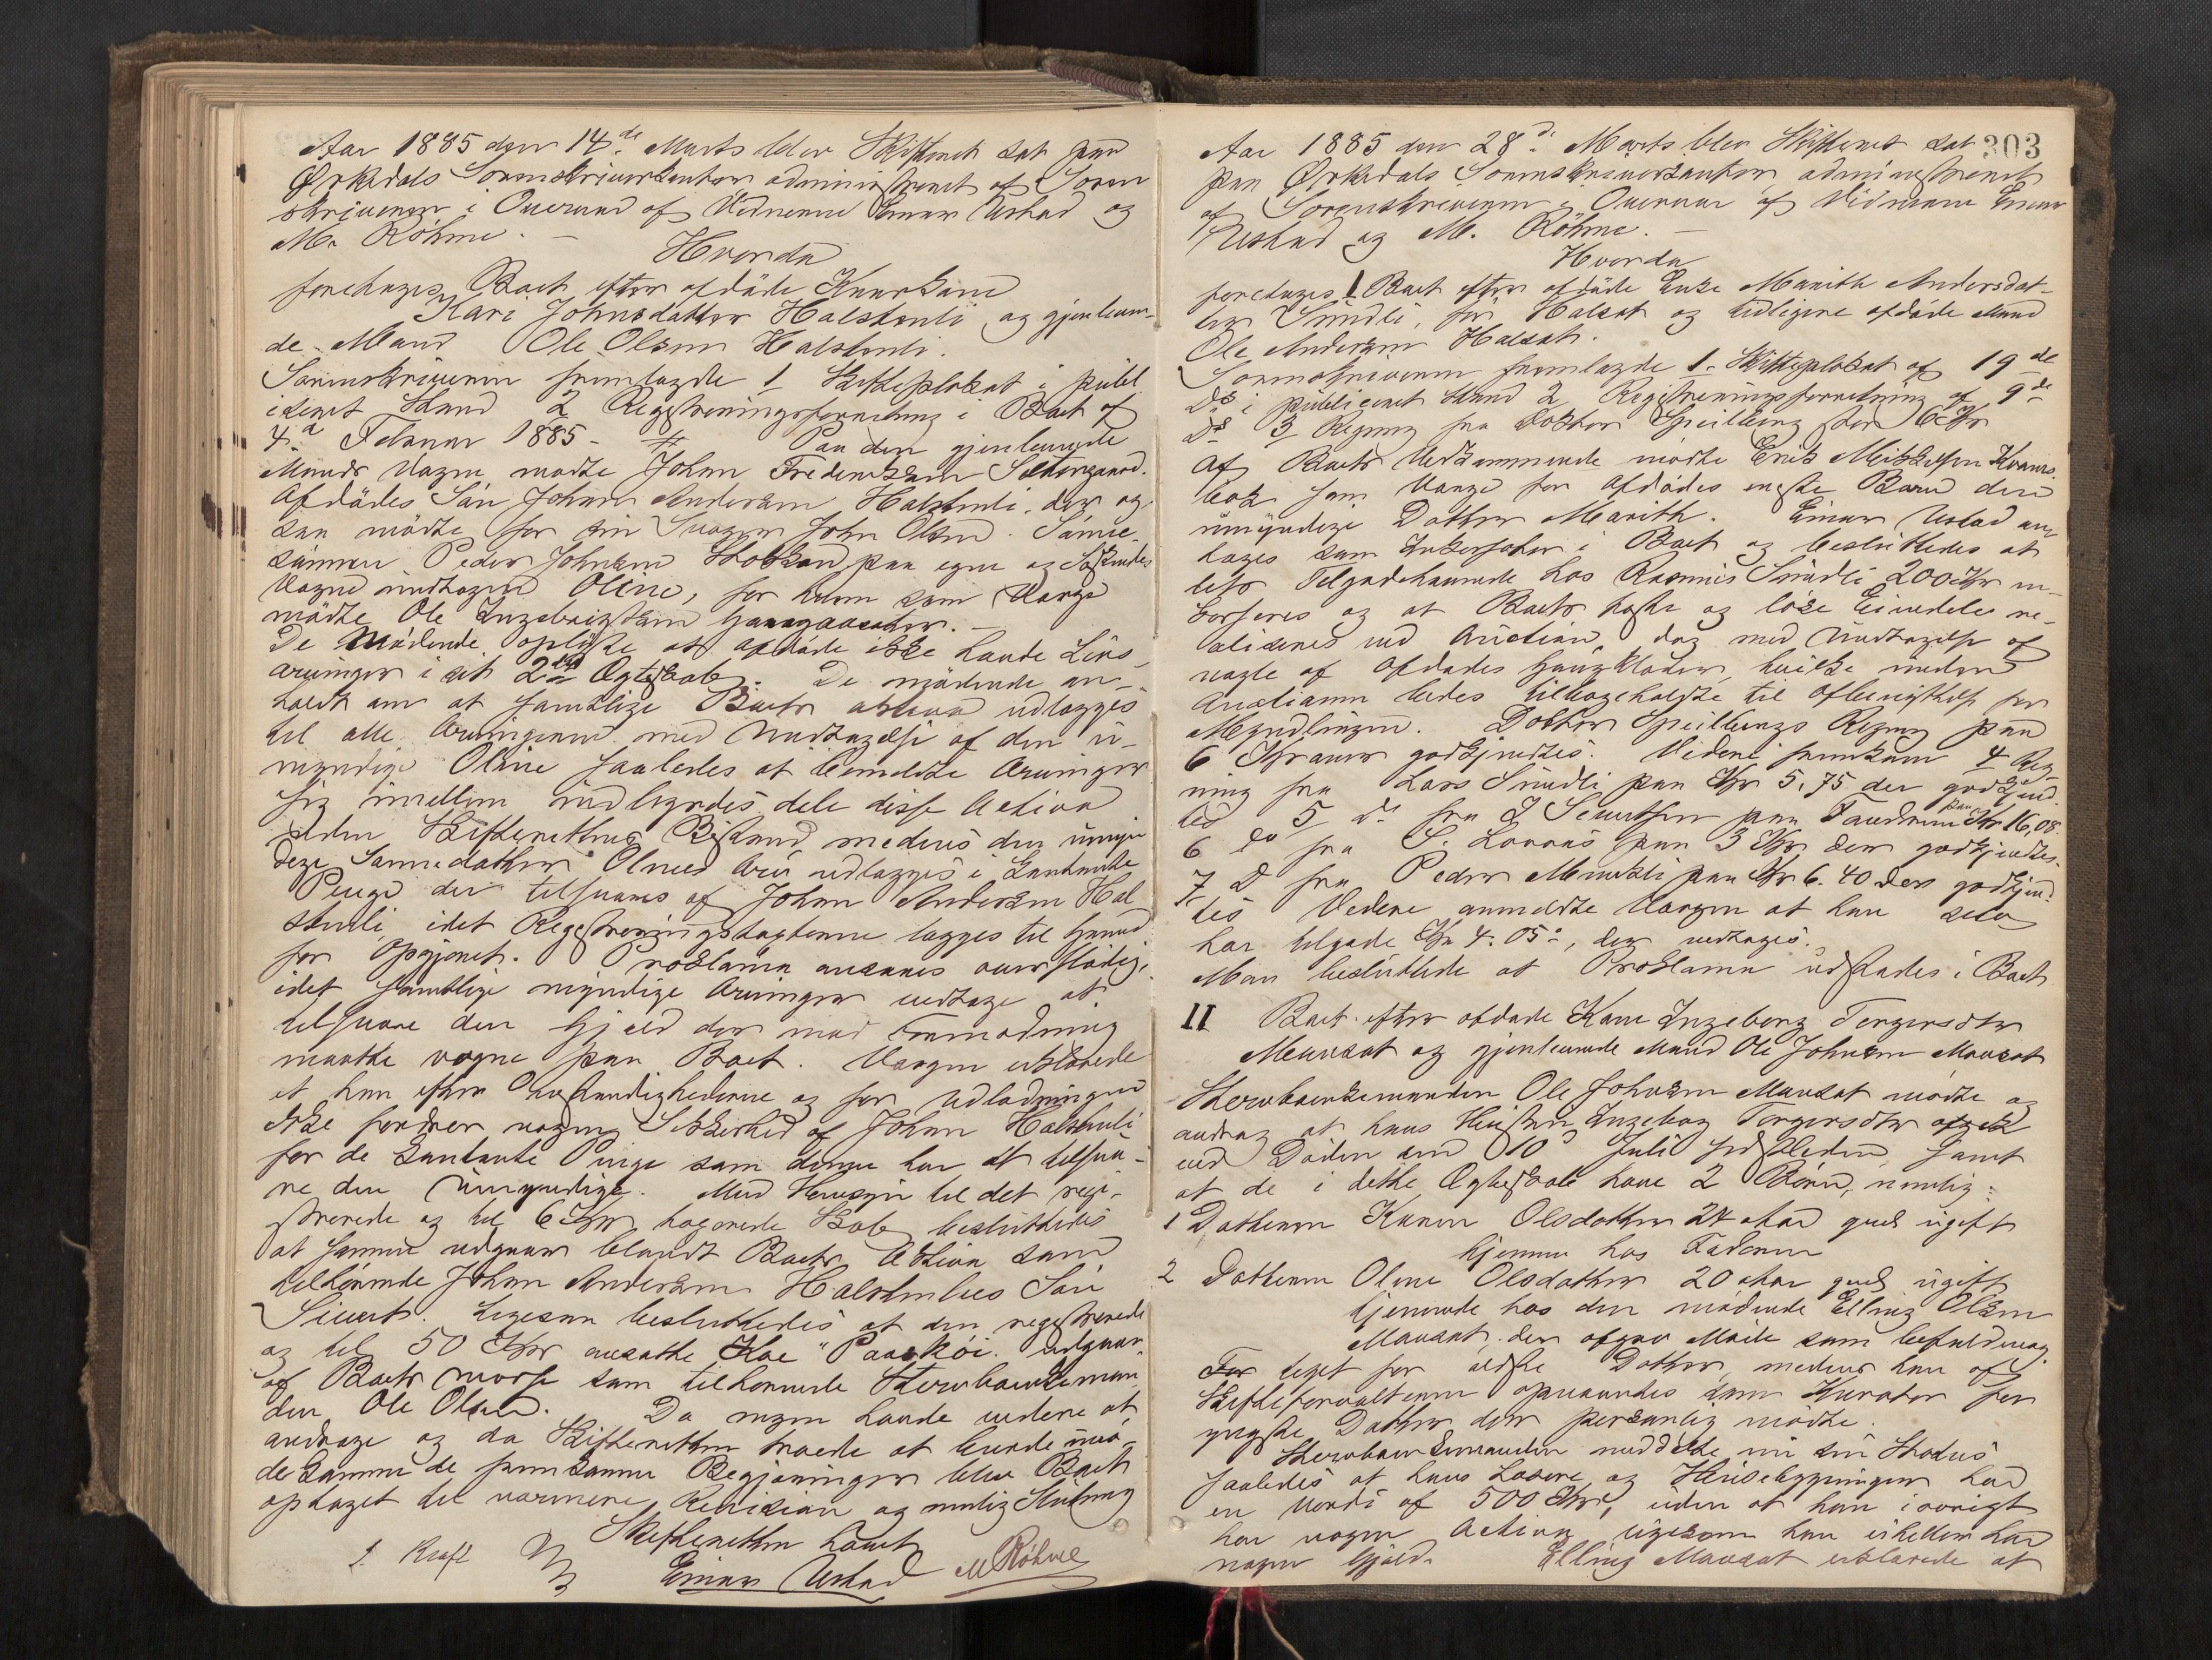 Aar 1885 den 14de Marts blev Skifteret sat paa
Ørkedals Sorenskriverkontor administreret af Soren
skriveren i Overvær af Vidnerne Einar Ustad og
M. Röhme. —
Hvorda
foretages Boet efter afdöde Kaarkone
Kari Johnsdatter Halstenli og gjenleven-
de Mand Ole Olsen Halstenli.
Sorenskriveren fremlagde 1 Skifteplakat i publi
ceret Stand 2 Registreringsforretning i Boet af
4de Februar 1885 - Paa den gjenlevende
Mands Vegne mødte Johan Fredriksen
Afdödes Sön Johan Andersen Halstenli, der og
saa mödte for sin Svoger John Olsen. Sönne-
sönnen Peder Johnsen paa egne og Söskendes
Vegne undtagen Oline, for hvem som Værge
mödte Ole Ingebrigtsen
De Mödende oplyste at afdöde ikke havde Livs-
arvinger i sit 2det Ægteskab. De mödende an-
holdt om at samtlige Boets aktiva udlægges
til alle Arvingerne med Undtagelse af den u-
myndige Oline saaledes at bemeldte Arvinger
sig imellem indbyrdes dele disse Activa
uden Skifterettens Bistand medens den umyn
dige Sönnedatter Olines Arv udlægges i Kontante
Penge der tilsvares af Johan Andersen Hal
stenli, idet Registreringstaxterne lægges til Grund
for Opgjöret. Proklama ansaaes overflödig,
idet samtlige myndige Arvinger vedtage at
tilsvare den Gjæld der mod Formodning
maatte vægne paa Boet. Værgen erklærede
at han efter Omstændighederne og for Udlodningen
ikke fordrer nogen Sikkerhed af Johan Halstenli
for de kontante Penge som denne har at tilsva-
re den Umyndige. Med Hensyn til det regi-
strerede og til 6 Kr taxerede Skab besluttedes
at samme udgaaer blandt Boets Aktiva som
tilhörende Johan Andersen Halstenlies Sön
Sivert. Ligesom besluttedes at den registrerede
og til 50 Kr ansatte Ko "Paasköi" udgaar
af Boets Masse som tilhörende Stervboenkeman
den Ole Olsen. Da ingen havde videre at
andrage og da Skifteretten troede at burde imö-
dekomme de fremkomne Begjæringer blev Boet
optaget til nærmere Revision og mulig Slutning
Skifteretten hævet
J. Kraft Einar Ustad M Röhme
303
Aar 1885 den 28de Marts blev Skifteret sat
paa Ørkedals Sorenskriverkontor administreret
af Sorenskriveren i Overvær af Vidnerne Einar
Ustad og M. Röhme. —
Hvorda
foretages I Boet efter afdöde Enke Marith Andersdat-
ter Snudli, för Halsat og tidligere afdöde Mand
Ole Andersen Halsat.
Sorenskriveren fremlagde 1. Skifteplakat af 19de
Ds i publiceret Stand 2 Registreringsforretning af 9de
Ds 3 Regning fra Doktor Speilberg stor 6 Kr
Af Boets Vedkommende mödte Erik Mikkelsen
som Værge for Afdödes eneste Barn den
umyndige Datter Marith. Einar Ustad an
tages som Inkassator i Boet og besluttedes at
dets Tilgodehavende hos Rasmus Snudli 200 Kr in-
kasseres og at Boets faste og löse Eiendele re-
aliseres ved Auction, dog med Undtagelse af
nogle af Afdödes Gangklæder, hvilke under
Auctionen bedes tilbageholdte til Afbenyttelse for
Myndlingen. Doktor Speilbergs Regning paa
6 Kroner godkjendtes. Videre fremkom 4 Reg
ning fra Lars Snudli paa Kr 5,75 der godkjend
tes 5 do fra J Sivertsen paa Kr 16,08.
6 do fra paa 3 Kr der godkjendtes.
7 D fra Peder paa Kr 6.40 der godkjend-
tes Videre anmeldte Værgen at han selv
har tilgode Kr 4.05., der vedtages.
Man besluttede at Proklama udstedes i Boet
II Boet efter afdöde Kone Ingeborg Torgersdtr
Mousat og gjenlevende Mand Ole Johnsen Mousat
Stervboenkemanden Ole Johnsen Mousat mödte og
androg at hans Hustru Ingeborg Torgersdtr afgik
ved Döden den 10de Juli sidstleden, samt
at de i dette Ægteskab have 2 Börn, nemlig:
1 Datteren Karen Olsdatter 24 Aar gml ugift
hjemme hos Faderen
2 Datteren Oline Olsdatter 20 Aar gml ugift
tjenende hos den mödende Elling Olsen
Mousat, der afgav Möde som befuldmæg
tiget for ældste Datter, medens han af
Skifteforvalteren opnævntes som Kurator for
yngste Datter der personlig mödte.
Stervboenkemanden meddelte nu sin Status
saaledes at hans Lösöre og Husebygninger har
en Værdi af 500 Kr, uden at han iövrigt
har nogen Activa, ligesom han eiheller har
nogen Gjæld. Elling Mousat erklærede at